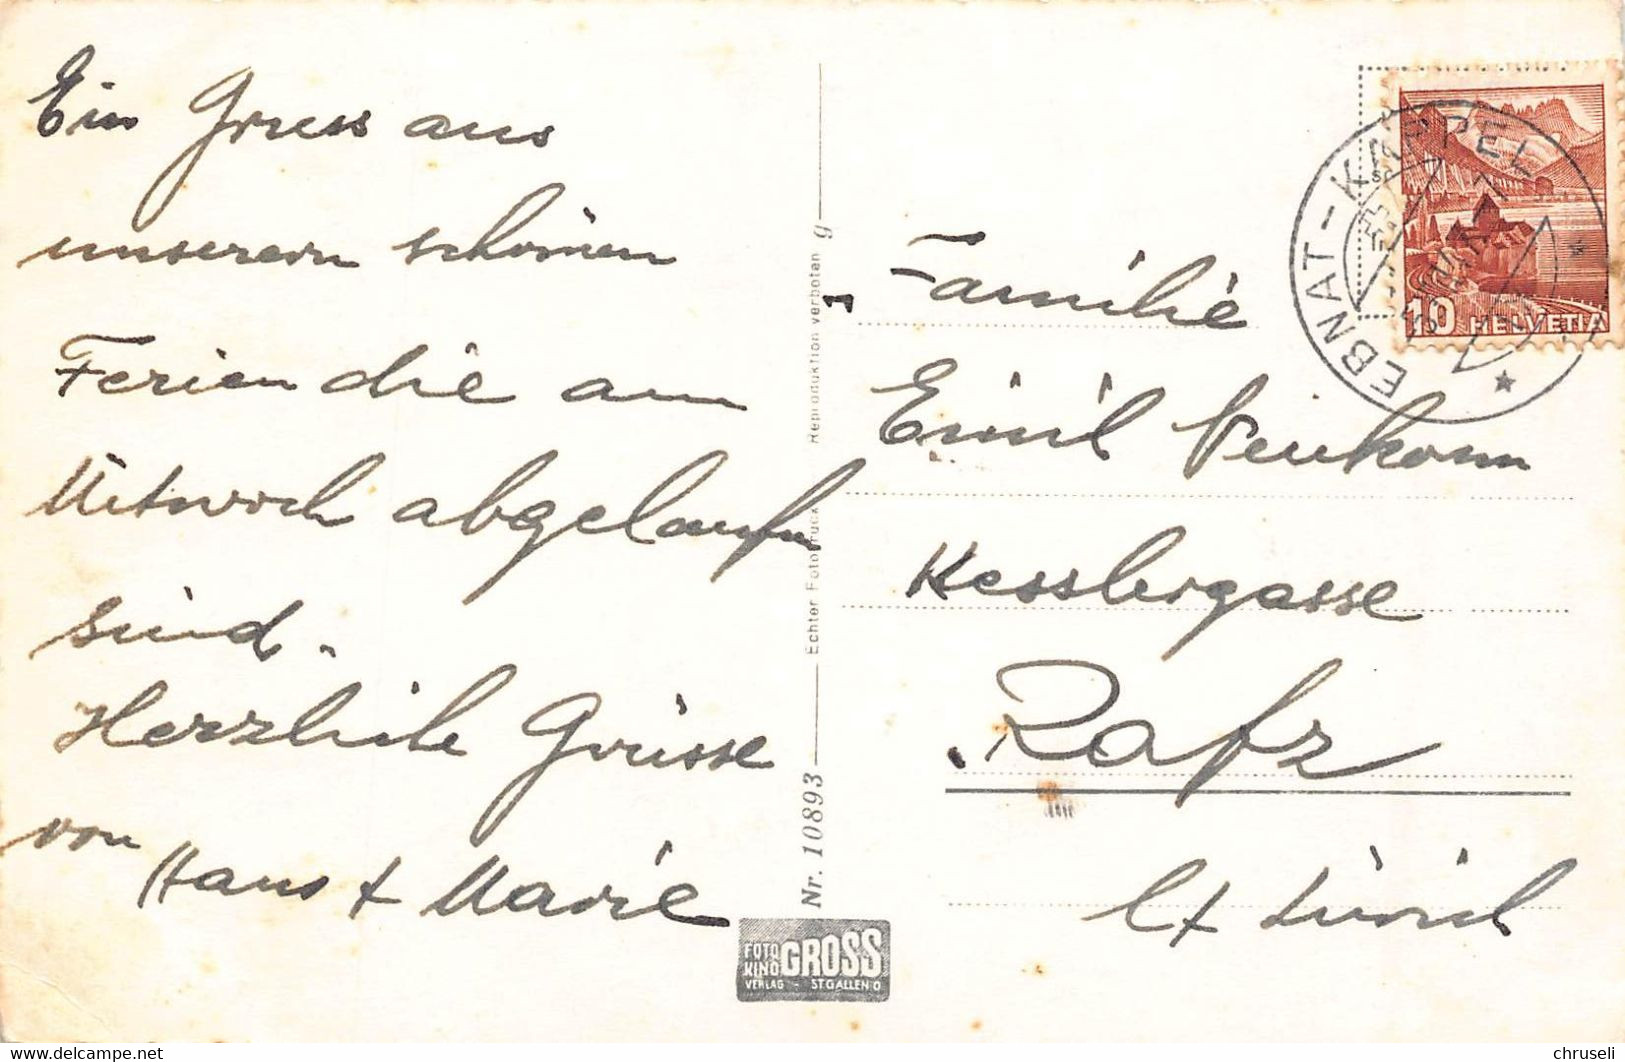 Ein Gruss aus
unseren schönen
Ferien die am
Mitwoch abgelaufen
sind.
Herzliche Grüsse
von Hans + Marie
Nr. 10893 Echter Fotodruck Reproduktion verboten g
FOTO KINO GROSS
VERLAG - ST GALLEN O
EBNAT-KAPPEL
10 HELVETIA
Familie
Emil Neukom
Kesslergasse
Rafz
Ct Zürich
delcampe.net
chruseli